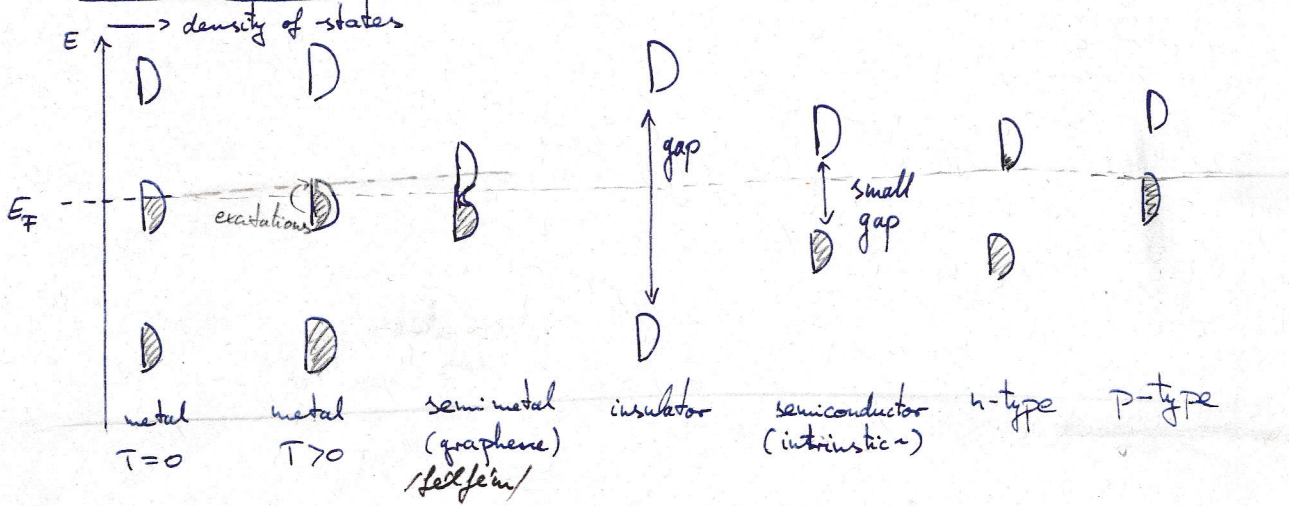 —> density of states
E
E_F
excitations
gap
small
gap
metal
T=0
metal
T>0
semimetal
(graphene)
/félfém/
insulator
semiconductor
(intrinstic~)
n-type
p-type